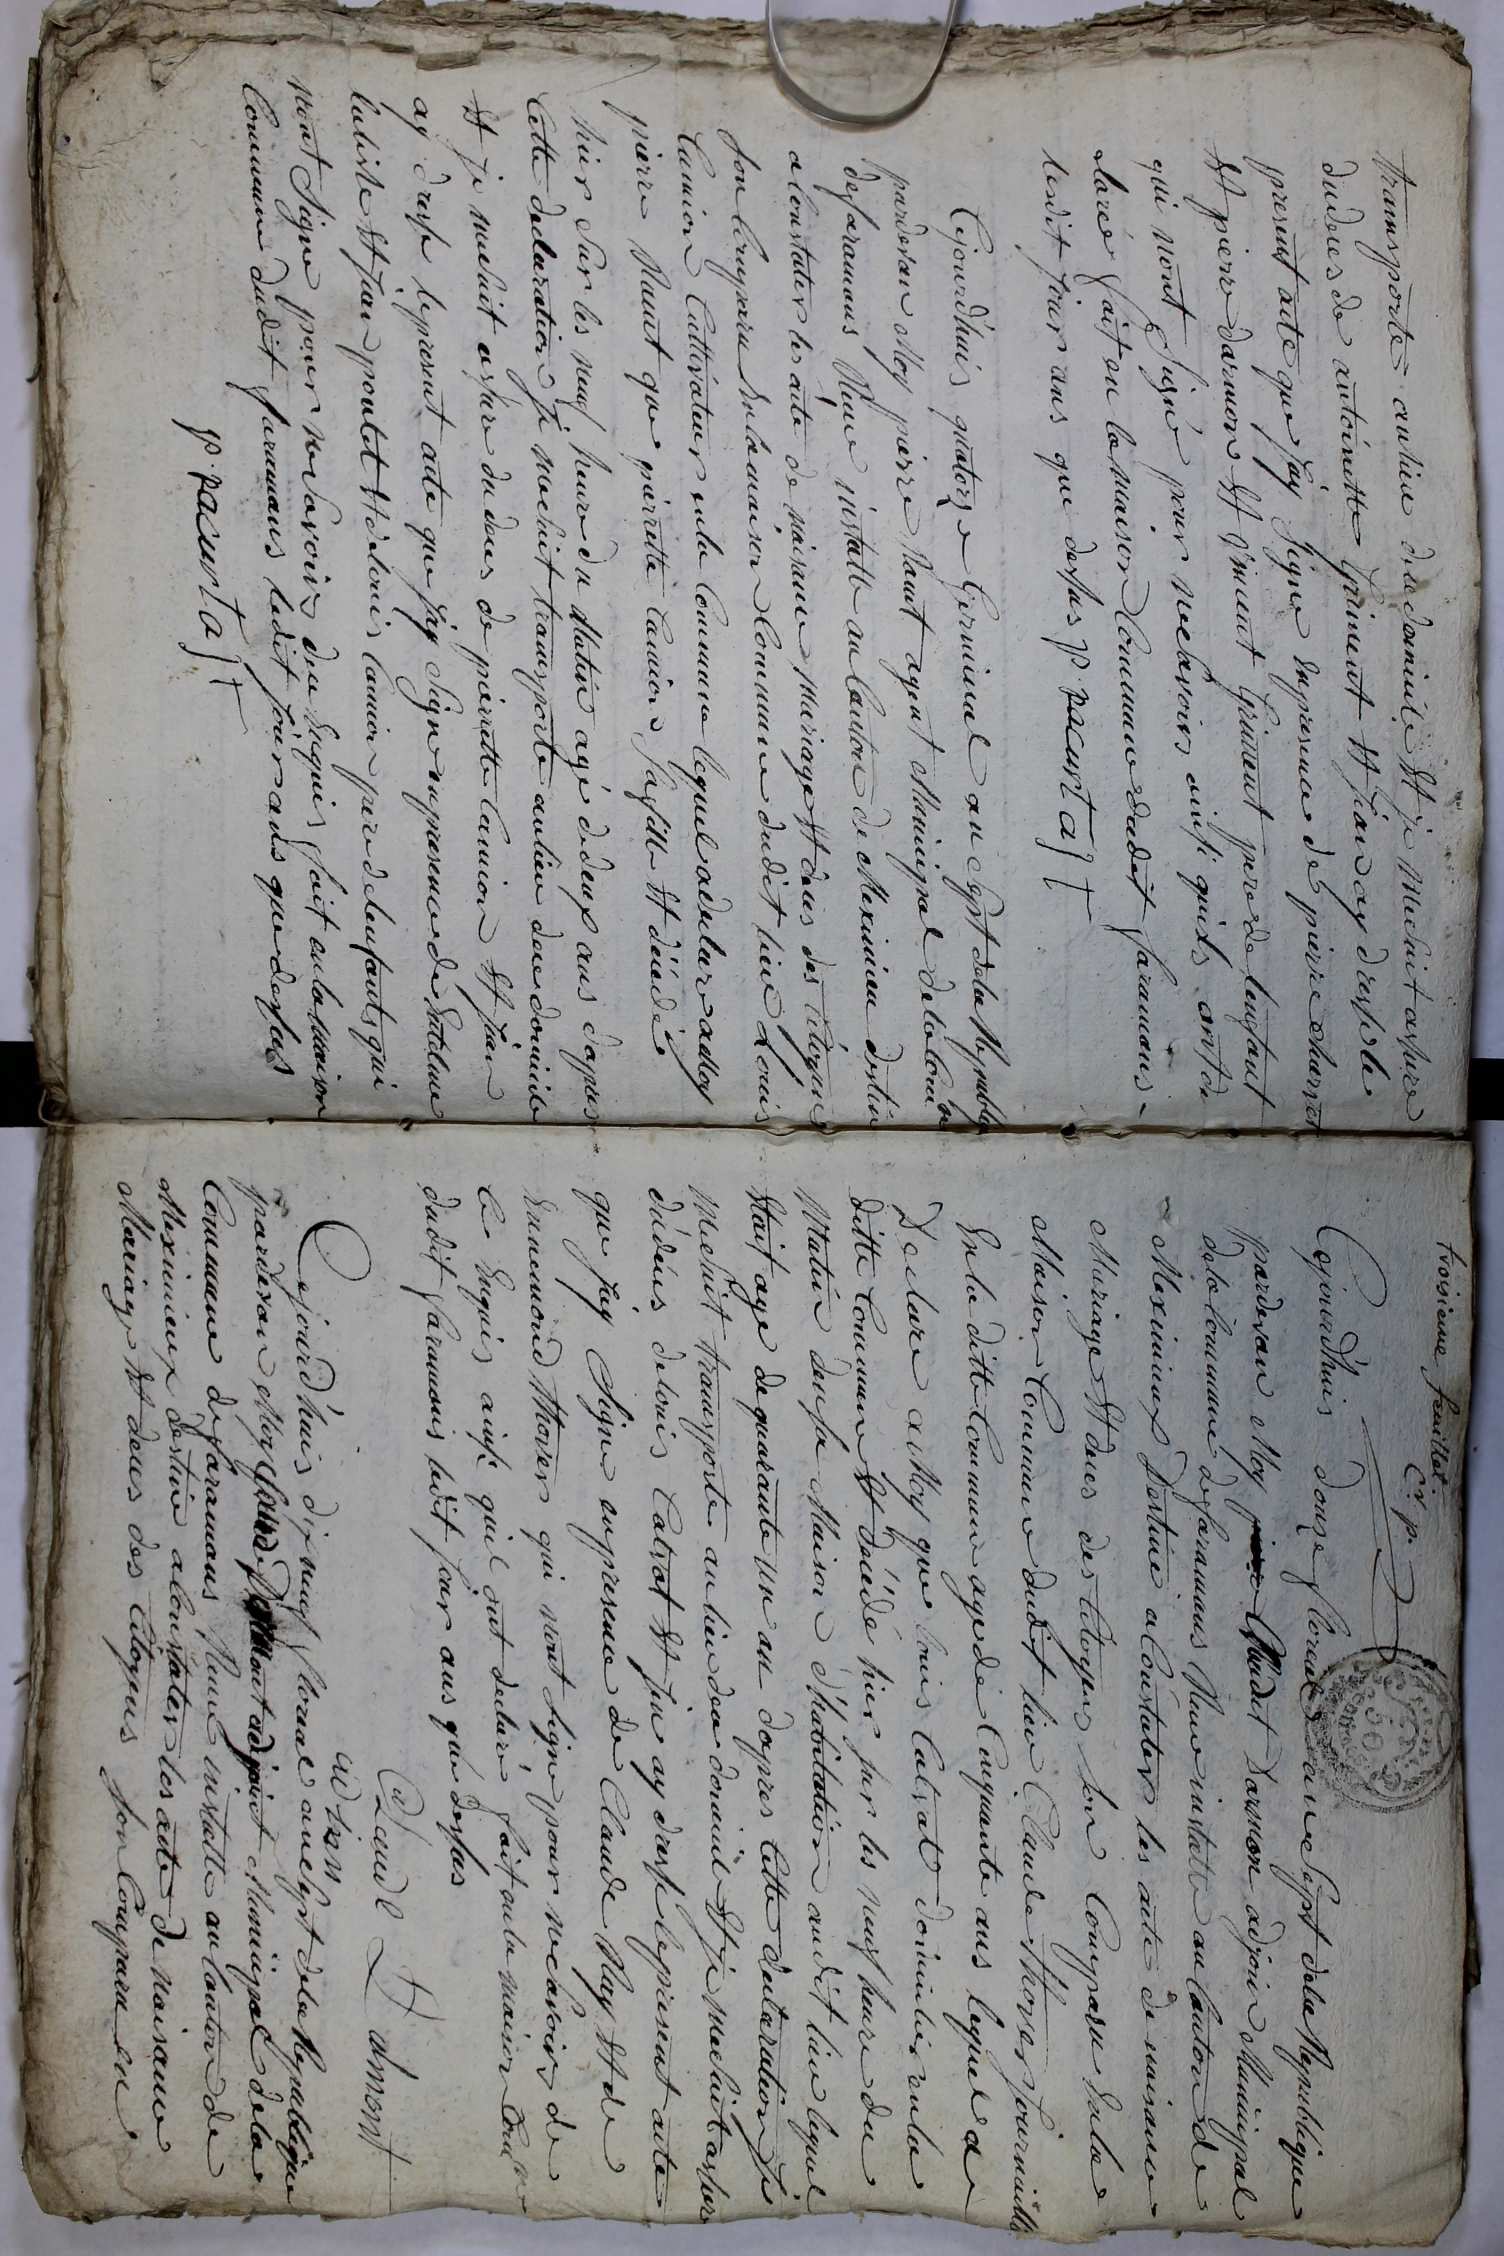 transporté au lieu de ce domicile et je me suit assuré
du deces de antoinette Guiment et j'en ay dressé le
present acte que j'ay Signe en presence de pierre charvat
et pierre darmon et vincent Guiment pere de lenfant
qui nont Signé pour ne savoirs ainsi quils ont dé
claré fait en la maison Commune dudit faramans
ledit jour ans que dessus p. pacut ajt
Cejourdhuis quatorze Germinal an sept de la Republiq
pardevan Moy pierre Naut agent Municipal de la Com ne
de faramans Reune instalt au Canton de Meximieu destiné
a Constater les acte de naisance mariage et deces des citoyens
son Comparu En la maison Commune dudit lieu Louis
Camion Cultivateur en la Commune lequel a declare a Moy
pierre Naut que pierrette Camion sa fille et décédé
hier Sur les neuf heure du Matin agé de deux ans dapres
Cette declaration je me suit transporte au lieu de ce domicile
et je me suit assure du deces de pierrette Camion et j'en
ay dressé le present acte que j'ay Signe en presence de
et Jean poulet et de louis Camion pere de lenfants qui
nont Signe pour ne savoirs de ce Enquis fait en la maison
Commune dudit faramans ledit jour ans que dessus
p. pacut ajt
troisieme feuillet
C. r. p.
Cejourdhuis douze floreal an Sept de la Republique
pardevan Moy Claude Darmon adjoin Municipal
de la Commune de faramans Reune instalte au Canton de
Meximieux Destiné a Constater les acte de naisance
Mariage et deces des Citoyens son Comparu En la
Maison Commune dudit lieu Claude Thover journaillé
En la ditte Commune agé de Cinquante ans lequel a
Declare a Moy que louis Calvat domicilier en la
ditte Commune et décédé hier sur les neuf heure du
Matin den sa Maison d'habitation audit lieu lequel
Etait age de quarante un an dapres Cette declaration je
me suit transporte au lieu de ce domicile et je me suit assure
du déces de louis Calvat et j'en ay dressé le present acte
que j'ay Signe en presence de Claude Rey et de
Enemond Thover qui nont Signe pour ne savoirs de
Ce Enquis ainsi quil ont declaré fait en la maison Com ne
dudit faramans ledit jour ans que dessus
Claude Darmont
adjoin
Cejourd'huis dix neuf floreal an Sept de la Republique
pardevan Moy Claude Darmont adjoint Municipal de la
Commune de faramans Reune instalte au Canton de
Meximieux destiné a Constater les acte de naisance
Mariage et deces des Citoyens son Comparu en